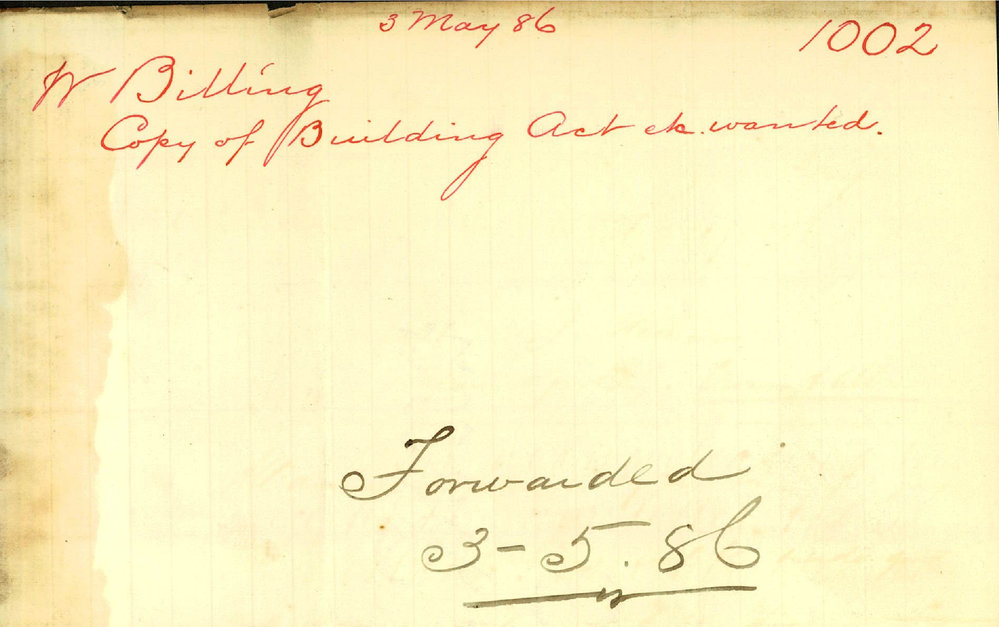 3 May 86
1002
W Billing
Copy of Building Act etc. wanted.
Forwarded
3-5.86